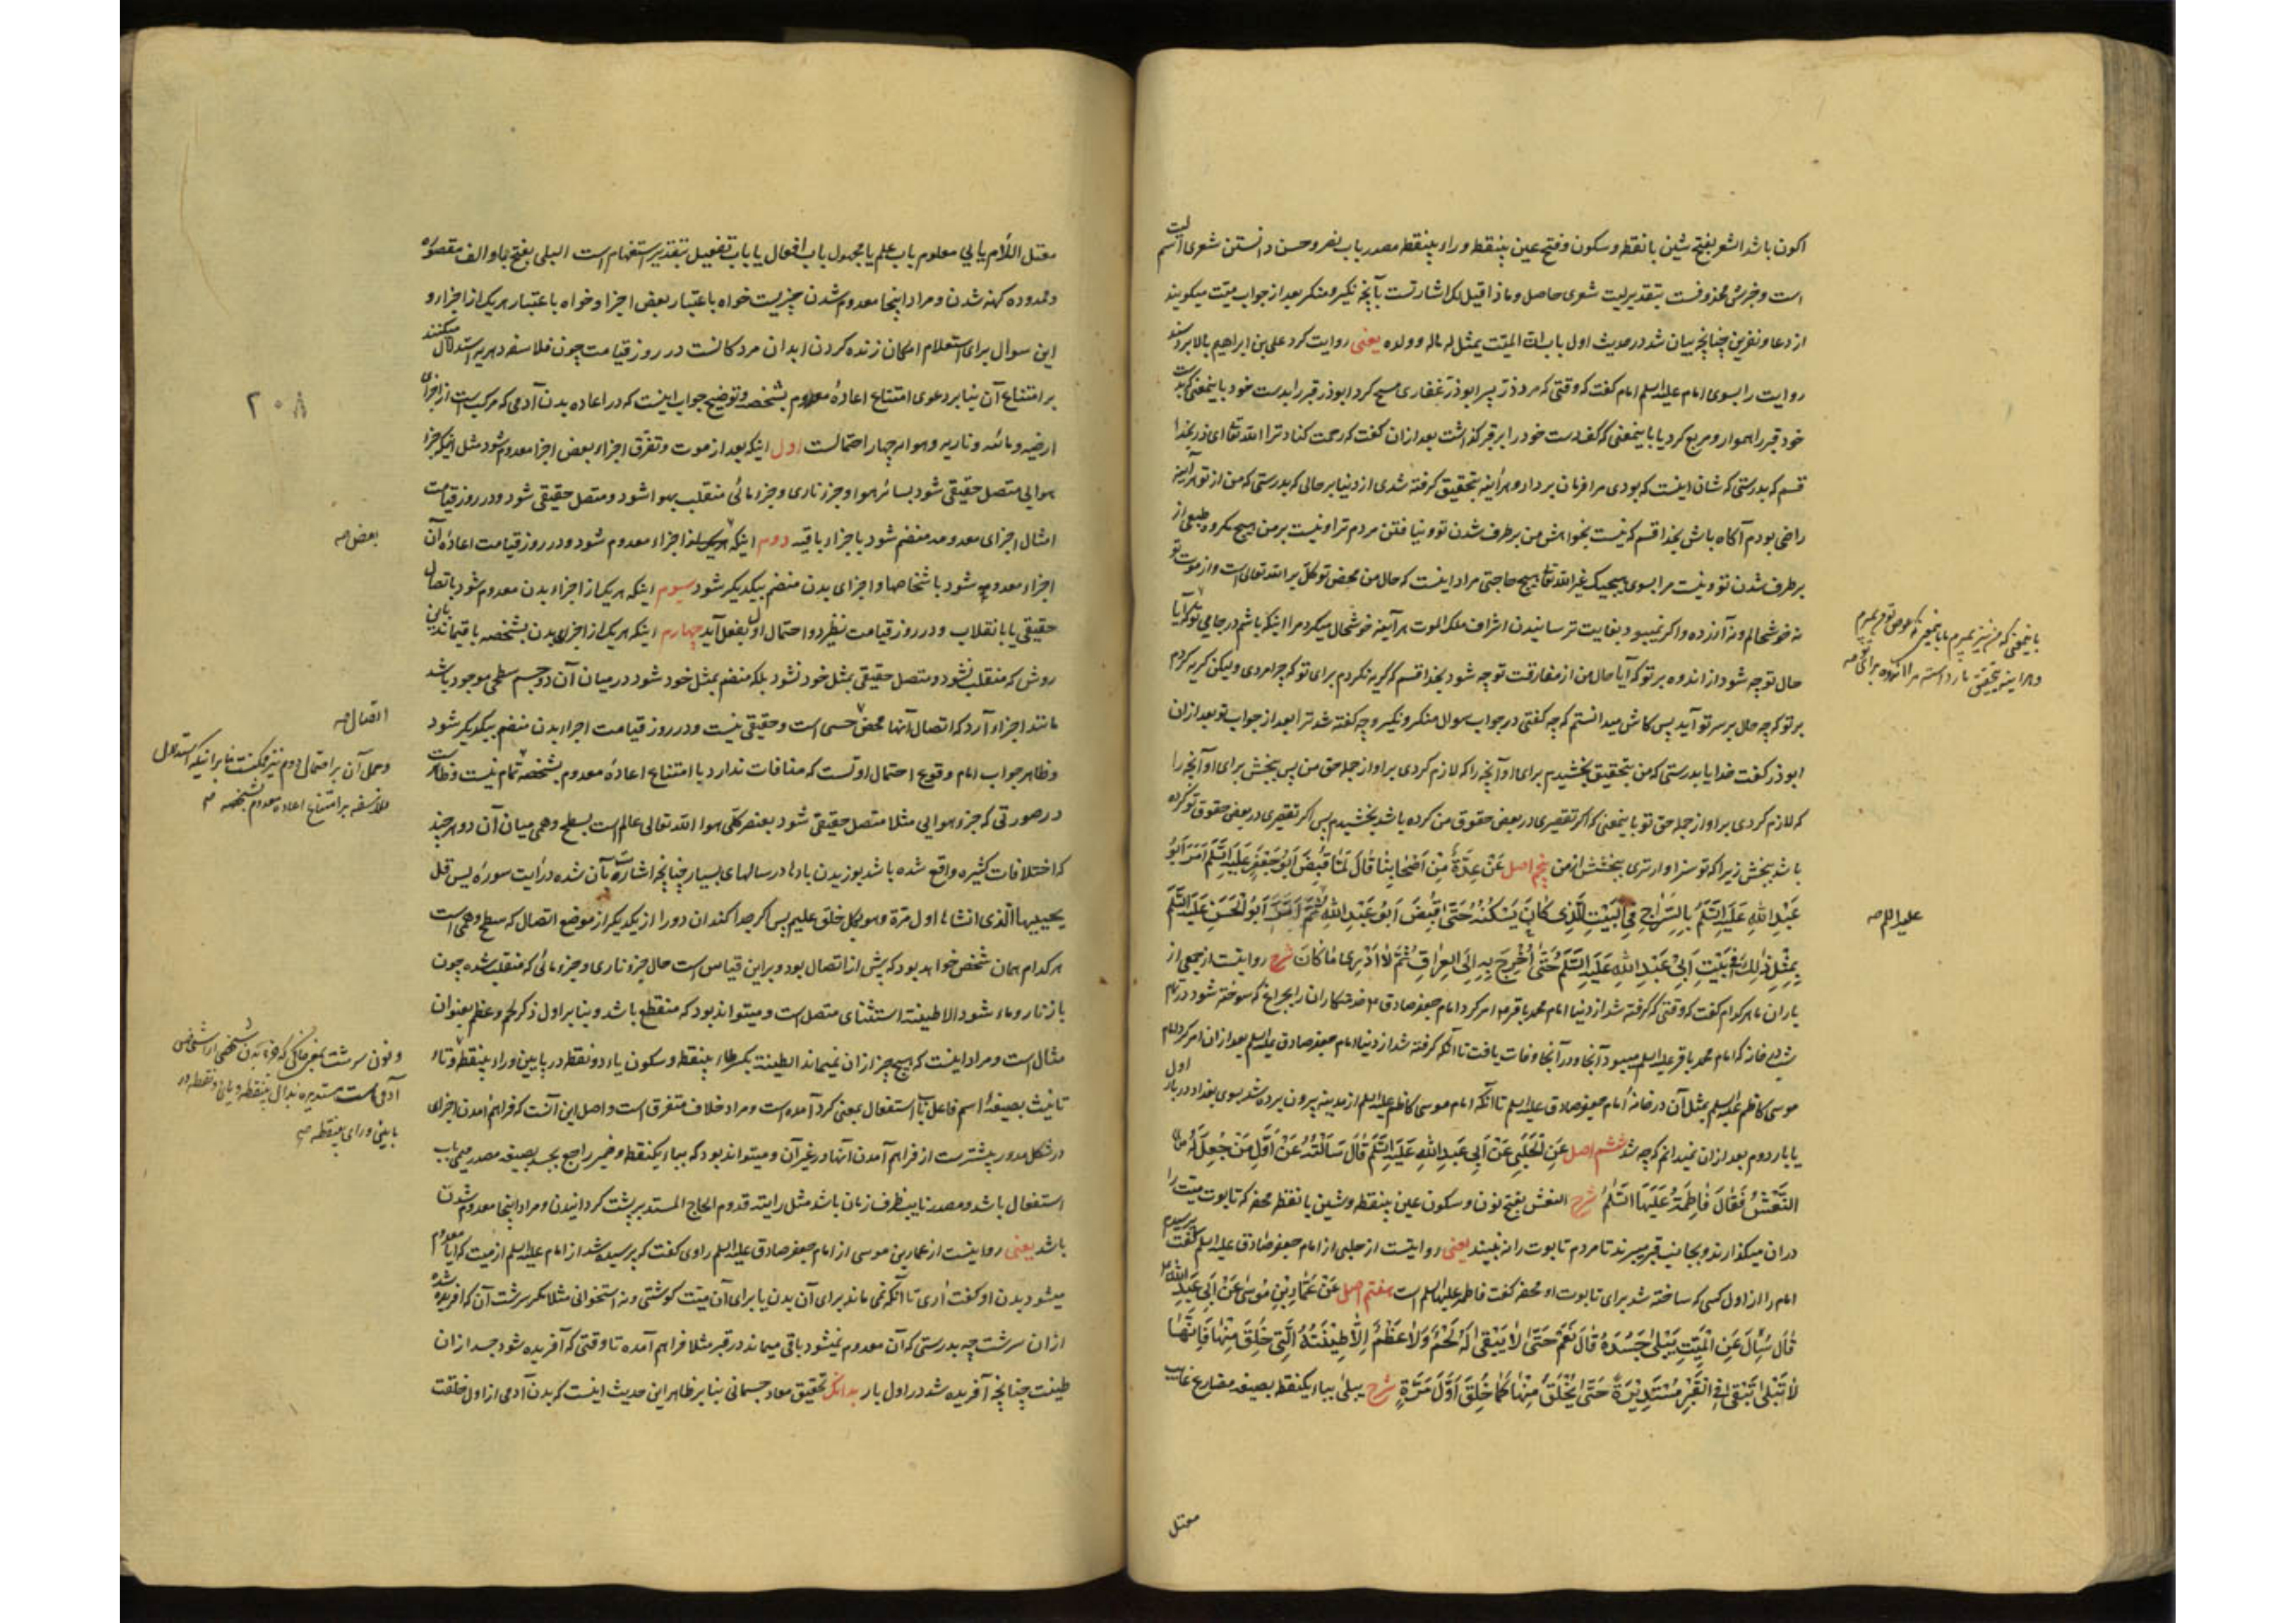 اکون باشد الشعر بفتح شین با نقطه و سکون و فتح عین بینقطه و راء بینقطه مصدر باب نصر و حسن دانستن شعری اسم لیت
است و خبرش محذوفست بتقدیر لیت شعری حاصل و ماذا قیل لک اشارتست بآنچه نکیر و منکر بعد از جواب میّت میکویند
از دعا و نفرین چنانچه بیان شد در حدیث اول باب انّ المیّت یمثل له ماله و ولده یعنی روایت کرد علی بن ابراهیم بالا برد سند
روایت را بسوی امام علیه السلم امام کفت که وقتی که مرد ذرّ پسر ابوذرّ غفاری مسح کرد ابوذر قبر را بدست خود باینمعنی که بدست
خود قبر را هموار و مربع کرد یا باینمعنی که کف دست خود را بر قبر کذاشت بعد از ان کفت که رحمت کناد ترا الله تعالی ای ذر بخدا
قسم که بدرستی که شان اینست که بودی مرا فرمان بردار و هرآینه بتحقیق کرفته شدی از دنیا بر حالی که بدرستی که من از تو هرآینه
راضی بودم آکاه باش بخدا قسم که نیست بخواهش من برطرف شدن تو و نیافتن مردم ترا و نیست بر من هیچ مکروه طبعی از
برطرف شدن تو و نیست مرا بسوی هیچیک غیر الله تعالی هیچ حاجتی مراد اینست که حال من محض توکل بر الله تعالی است و از موت تو
نه خوشحالم و نه آزرده و اکر نمیبود بغایت ترسانیدن اشراف ملک الموت هرآینه خوشحال میکرد مرا اینکه باشم در جای تو که آیا
حال توجه شود از اندوه بر تو که آیا حال من از مفارقت تو چه شود بخدا قسم که کریه نکردم برای تو که چرا مردی ولیکن کریه کردم
بر تو که چه حال بر سر تو آید پس کاش میدانستم که چه کفتی در جواب سوال منکر و نکیر و چه کفته شد ترا بعد از جواب تو بعد از ان
ابوذر کفت خدایا بدرستی که من بتحقیق بخشیدم برای او آنچه را که لازم کردی بر او از جمله حق من پس ببخش برای او آنچه را
که لازم کردی بر او از جمله حق تو باینمعنی که اکر تقصیری در بعض حقوق من کرده باشد بخشیدم پس اکر تقصیری در بعض حقوق تو کرده
باشد ببخش زیرا که تو سزاوارتری ببخشش از من پنجم اصل عَنْ عِدَّةٍ مِنْ اَصْحَابِنَا قَالَ لَمَّا قُبِضَ اَبُو جَعْفَرٍ عَلَیْهِ السَّلَمُ اَمَرَ اَبُو
عَبْدِ اللهِ عَلَیْهِ السَّلَمُ بِالسِّرَاجِ فِی الْبَیْتِ الَّذِی کَانَ یَسْکُنُهُ حَتَّى قُبِضَ اَبُو عَبْدِ اللهِ ثُمَّ اَمَرَ اَبُو الْحَسَنِ عَلَیْهِ السَّلَمُ
بِمِثْلِ ذٰلِکَ فِی بَیْتِ اَبِی عَبْدِ اللهِ عَلَیْهِ السَّلَمُ حَتَّى اُخْرِجَ بِهِ اِلَى الْعِرَاقِ ثُمَّ لَا اَدْرِی مَا کَانَ شرح روایتست از جمعی از
یاران ما هر کدام کفت که وقتی که کرفته شد از دنیا امام محمد باقر امر کرد امام جعفر صادق خدمتکاران را بچراغ که سوخته شود در تمام
شب در خانه که امام محمد باقر علیه السلم میبود آنجا و در آنجا وفات یافت تا آنکه کرفته شد از دنیا امام جعفر صادق علیه السلم بعد از ان امر کرد امام
موسی کاظم علیه السلم بمثل آن در خانهٔ امام جعفر صادق علیه السلم تا آنکه امام موسی کاظم علیه السلم از مدینه بیرون برده شد بسوی بغداد در بار اول
یا بار دوم بعد از ان نمیدانم که چه شد ششم اصل عَنِ الْحَلَبِیِّ عَنْ اَبِی عَبْدِ اللهِ عَلَیْهِ السَّلَمُ قَالَ سَاَلْتُهُ عَنْ اَوَّلِ مَنْ جُعِلَ لَهُ
النَّعْشُ فَقَالَ فَاطِمَةُ عَلَیْهَا السَّلَمُ شرح النعش بفتح نون و سکون عین بینقطه و شین با نقطه محفه که تابوت میّت را
در ان میکذارند و بجانب قبر میبرند تا مردم تابوت را نه بینند یعنی روایتست از حلبی از امام جعفر صادق علیه السلم کفت پرسیدم
امام را از اول کسی که ساخته شد برای تابوت او محفه کفت فاطمه علیها السلم است هفتم اصل عَنْ عَمَّارِ بْنِ مُوسَى عَنْ اَبِی عَبْدِ اللهِ
قَالَ سُئِلَ عَنِ الْمَیِّتِ یَبْلَى جَسَدُهُ قَالَ نَعَمْ حَتَّى لَا یَبْقَى لَهُ لَحْمٌ وَلَا عَظْمٌ اِلَّا طِینَتُهُ الَّتِی خُلِقَ مِنْهَا فَاِنَّهَا
لَا تَبْلَى تَبْقَى فِی الْقَبْرِ مُسْتَدِیرَةً حَتَّى یُخْلَقَ مِنْهَا کَمَا خُلِقَ اَوَّلَ مَرَّةٍ شرح یبلی بباء یکنقطه بصیغه مضارع غایب
معتل
علیه السلم صه
معتل اللّام یایی معلوم باب علم یا مجهول باب افعال یا باب تفعیل بتقدیر استفهام است البلی بفتح باء و الف مقصوره
و ممدوده کهنه شدن و مراد اینجا معدوم شدن چیزیست خواه باعتبار بعض اجزا و خواه باعتبار هر یک از اجزا و
این سوال برای استعلام امکان زنده کردن ابدان مردکانست در روز قیامت چون فلاسفه دهریه استدلال میکنند
بر امتناع آن بنا بر دعوی امتناع اعادهٔ معدوم بشخصه و توضیح جواب اینست که در اعاده بدن آدمی که مرکب است از اجزای
ارضیه و مائیه و ناریه و هوائیه چهار احتمالست اول اینکه بعد از موت و تفرّق اجزاء بعض اجزا معدوم شود مثل اینکه جزء
هوایی متصل حقیقی شود بسائر هوا و جزء ناری و جزء مائی منقلب بهوا شود و متصل حقیقی شود و در روز قیامت
امثال اجزای معدومه منضم شود باجزاء باقیه دوم اینکه هر یک از اجزاء معدوم شود و در روز قیامت اعادهٔ آن
اجزاء معدومه شود باشخاصها و اجزای بدن منضم بیکدیکر شود سیوم اینکه هر یک از اجزاء بدن معدوم شود باتصال
حقیقی یا بانقلاب و در روز قیامت نظیر دو احتمال اول بفعل آید چهارم اینکه هر یک از اجزای بدن بشخصه باقیماند باین
روش که منقلب نشود و متصل حقیقی بمثل خود نشود بلکه منضم بمثل خود شود در میان آن دو جسم سطحی موجود باشد
مانند اجزاء آرد که اتصال آنها محض حسی است و حقیقی نیست و در روز قیامت اجزاء بدن منضم بیکدیکر شود
و ظاهر جواب امام وقوع احتمال اولست که منافات ندارد با امتناع اعادهٔ معدوم بشخصه تمام نیست و ظاهر است
در صورتی که جزء هوایی مثلا متصل حقیقی شود بعنصر کلی هوا الله تعالی عالم است بسطح وهمی میان آن دو هر چند
که اختلافات کثیره واقع شده باشد بوزیدن بادها در سالهای بسیار چنانچه اشارت بآن شده در آیت سورهٔ یس قل
یحییها الذی انشاها اول مرة و هو بکل خلق علیم پس اکر جدا کند ان دو را از یکدیکر از موضع اتصال که سطح وهمی است
هر کدام همان شخص خواهد بود که پیش از اتصال بود و بر این قیاس است حال جزء ناری و جزء مائی که منقلب شده چون
باز نار و ماء شود الا طینته استثنای متصل است و میتواند بود که منقطع باشد و بنا بر اول ذکر لحم و عظم بعنوان
مثال است و مراد اینست که هیچ چیز از ان نمیماند الطینة بکسر طاء بینقطه و سکون یاء دو نقطه در پایین و راء بینقطه و تاء
تانیث بصیغهٔ اسم فاعل باب استفعال بمعنی کرد آمده است و مراد خلاف متفرق است و اصل این آنست که فراهم آمدن اجزای
در شکل مدور بیشترست از فراهم آمدن آنها در غیر آن و میتواند بود که بباء یکنقطه و ضمیر راجع بجسد بصیغه مصدر میمی باب
استفعال باشد و مصدر نایب ظرف زمان باشد مثل رایته قدوم الحاج المستدبر پشت کردانیدن و مراد اینجا معدوم شدن
باشد یعنی روایتست از عمار بن موسی از امام جعفر صادق علیه السلم راوی کفت که پرسیده شد از امام علیه السلم از میت که آیا معدوم
میشود بدن او کفت اری تا آنکه نمی ماند برای آن بدن یا برای آن میّت کوشتی و نه استخوانی مثلا مکر سرشت آن که آفریده شده
از ان سرشت چه بدرستی که آن معدوم نمیشود باقی میماند در قبر مثلا فراهم آمده تا وقتی که آفریده شود جسد از ان
طینت چنانچه آفریده شد در اول بار بدانکه تحقیق معاد جسمانی بنا بر ظاهر این حدیث اینست که بدن آدمی از اول خلقت
۲۰۸
بعض صه
اتصال صه
و حمل آن بر احتمال دوم نیز ممکنست بنا بر اینکه استدلال
فلاسفه بر امتناع اعاده معدوم بشخصه صه